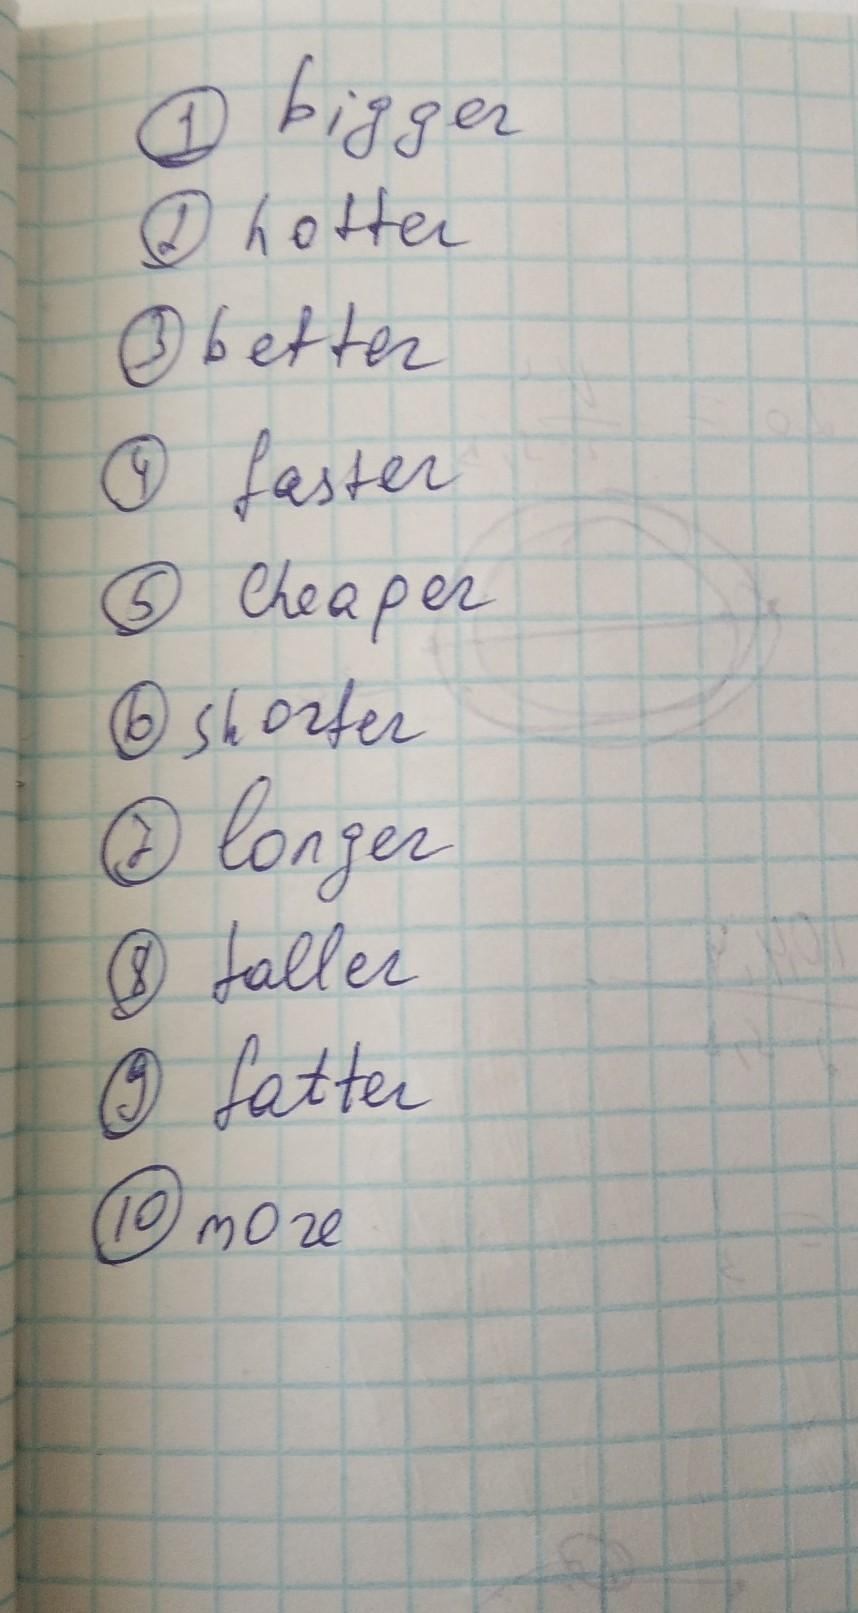 1 bigger
2 hotter
3 better
4 faster
5 cheaper
6 shorter
7 longer
8 taller
9 fatter
10 more